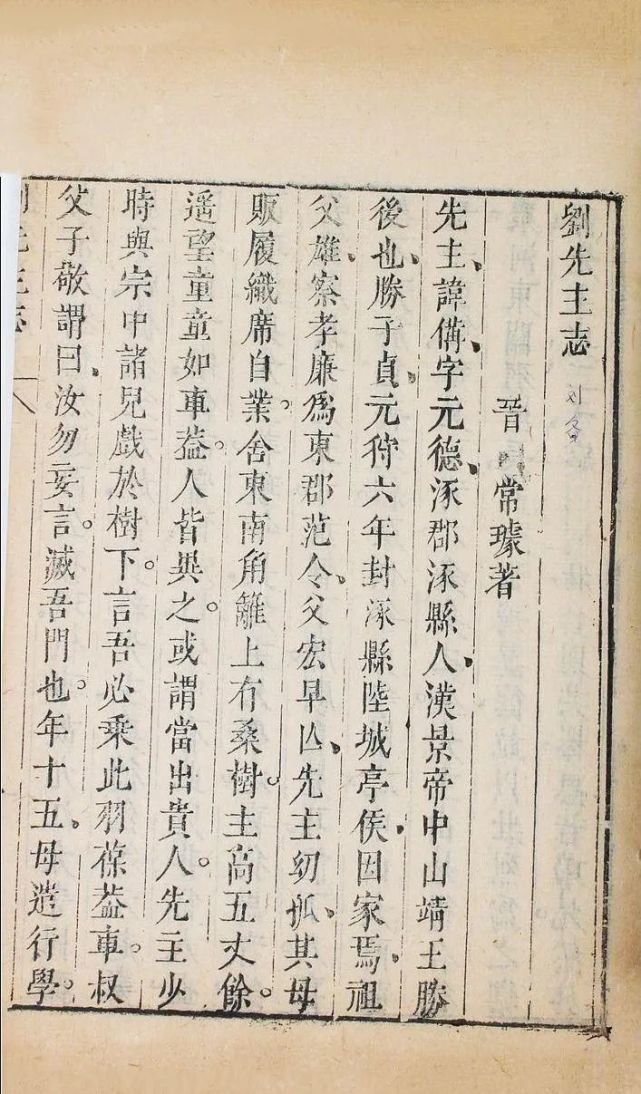 劉先主志
刘备
晉 常璩著
先主、諱備、字元德、涿郡涿縣人、漢景帝中山靖王勝
後也、勝子貞、元狩六年封涿縣陸城亭侯、因家焉、祖
父雄、察孝廉、爲東郡范令、父宏早亾、先主幼孤、其母
販履織席自業。舍東南角籬上有桑樹。主高五丈餘。
遥望童童如車葢。人皆異之。或謂當出貴人。先主少
時與宗中諸兒戲於樹下。言吾必乘此羽葆葢車。叔
父子敬謂曰、汝勿妄言。滅吾門也。年十五。母遣行學。
先主志